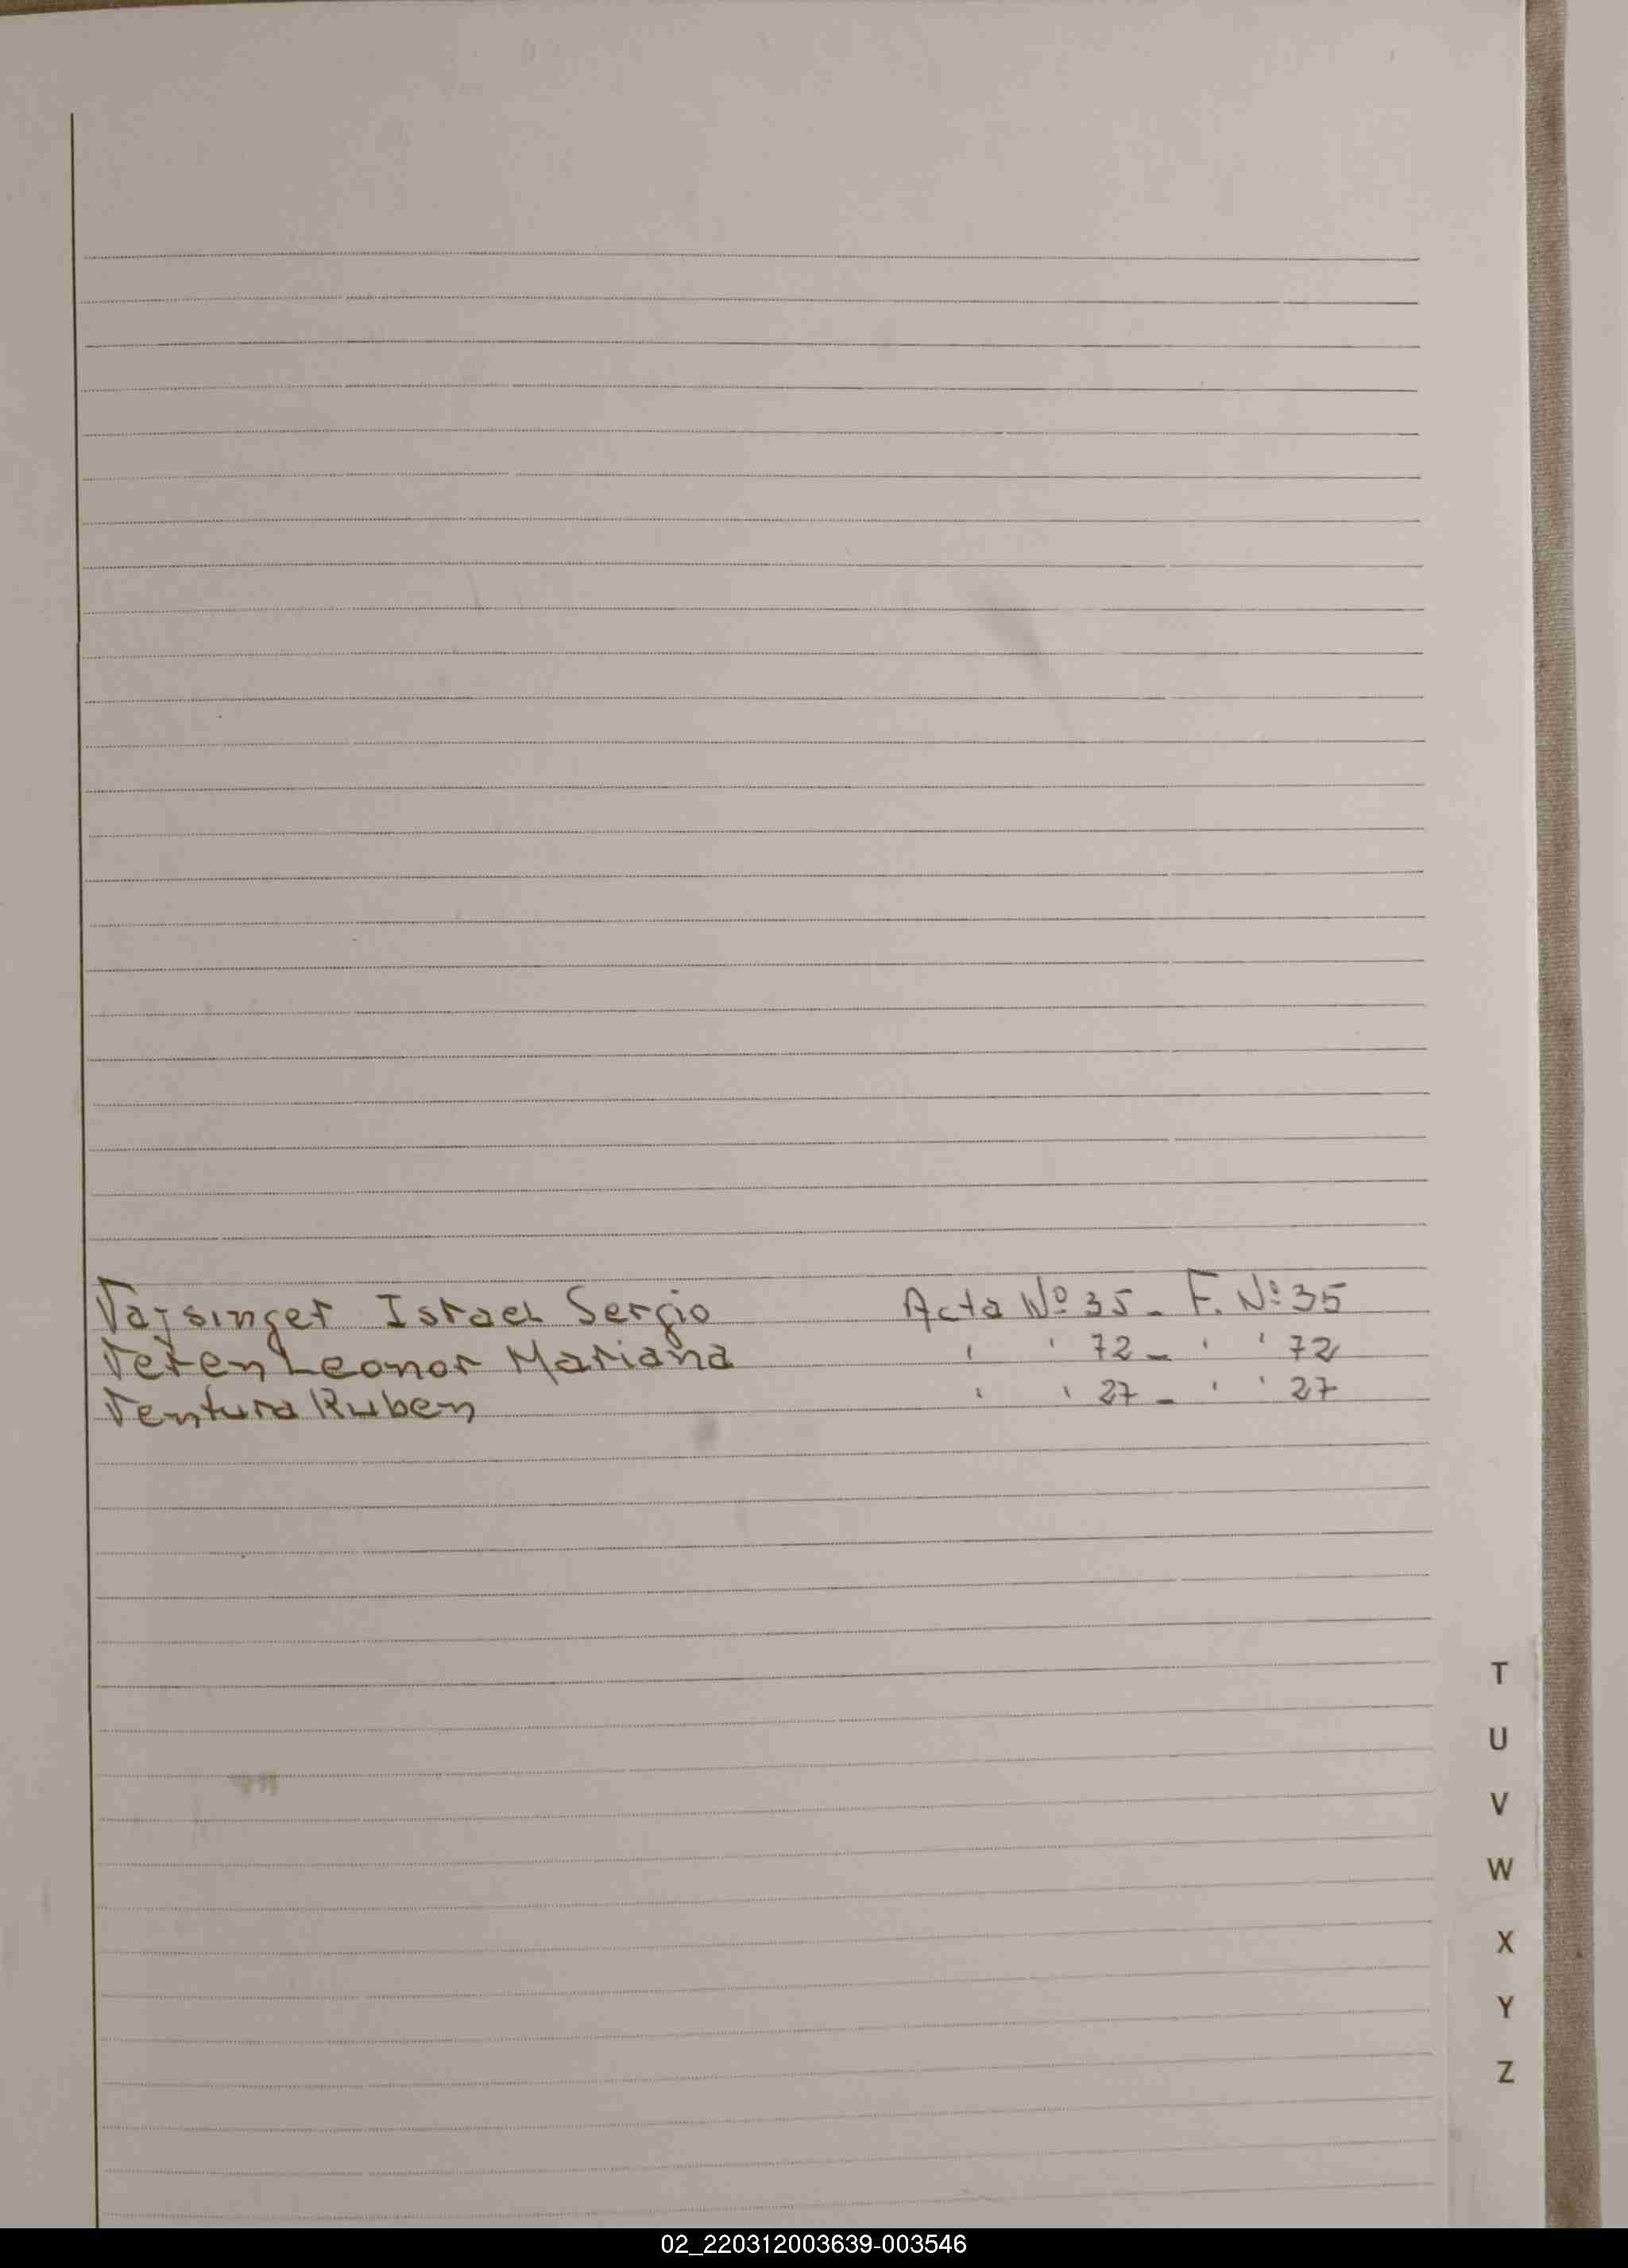 Vaisinger Israel Sergio Acta Nº 35 - F. Nº 35
Veren Leonor Mariana " " 72 - " " 72
Ventura Ruben " " 27 - " " 27
T
U
V
W
X
Y
Z
02_220312003639-003546